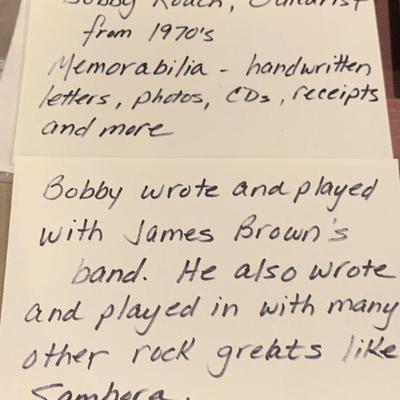 Bobby Roach, Guitarist
from 1970's
Memorabilia - handwritten
letters, photos, CDs, receipts
and more
Bobby wrote and played
with James Brown's
band. He also wrote
and played in with many
other rock greats like
Sambora.